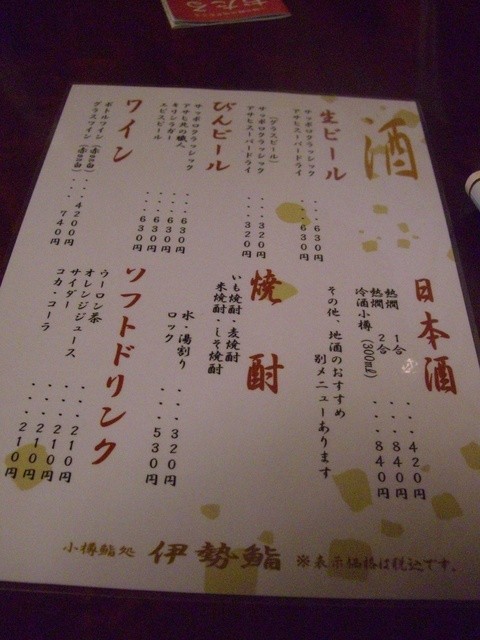 おたる
酒
生ビール
サッポロクラシック ・・・630円
アサヒスーパードライ ・・・630円
(グラスビール)
サッポロクラシック ・・・320円
アサヒスーパードライ ・・・320円
びんビール
サッポロクラシック ・・・630円
アサヒ 熟撰
キリンラガー ・・・630円
エビスビール ・・・630円
ワイン
ボトルワイン(赤or白)・・・420円
グラスワイン(赤or白)・・・740円
日本酒
熱燗 1合 ・・・420円
熱燗 2合 ・・・840円
冷酒小樽(300ml) ・・・840円
その他、地酒のおすすめ
別メニューあります
焼酎
いも焼酎・麦焼酎
米焼酎・しそ焼酎
水・湯割り ・・・320円
ロック ・・・530円
ソフトドリンク
ウーロン茶 ・・・210円
オレンジジュース ・・・210円
サイダー ・・・210円
コカ・コーラ ・・・210円
小樽鮨処 伊勢鮨 ※表示価格は税込です。